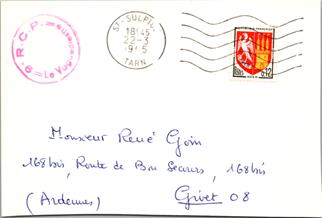 R.C.P.
6 = Le Vag
ST-SULPI
18H45
22-3
1965
TARN
REPUBLIQUE FRANÇAISE
0,12
AUCH
Monsieur René Goin
168 bis, Route de Bon Secours, 168 bis
(Ardennes) Givet 08